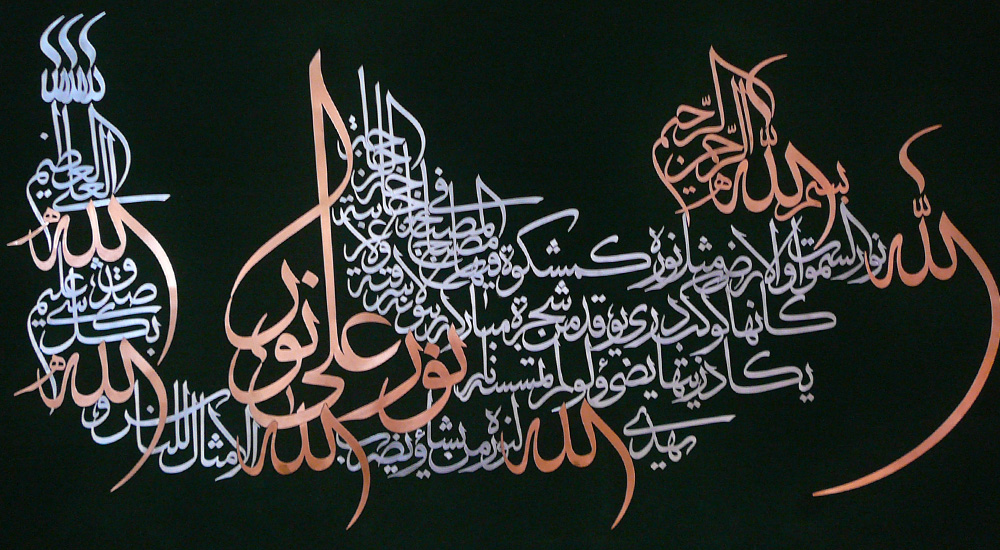 بسم الله الرحمن الرحيم
الله نور السموات والارض مثل نوره كمشكوة فيها مصباح المصباح في زجاجة الزجاجة
كانها كوكب دري يوقد من شجرة مباركة زيتونة لا شرقية ولا غربية
يكاد زيتها يضئ ولو لم تمسسه نار
نور على نور
يهدي الله لنوره من يشاء ويضرب الله الامثال للناس و
الله بكل شئ عليم
صدق الله العلي العظيم